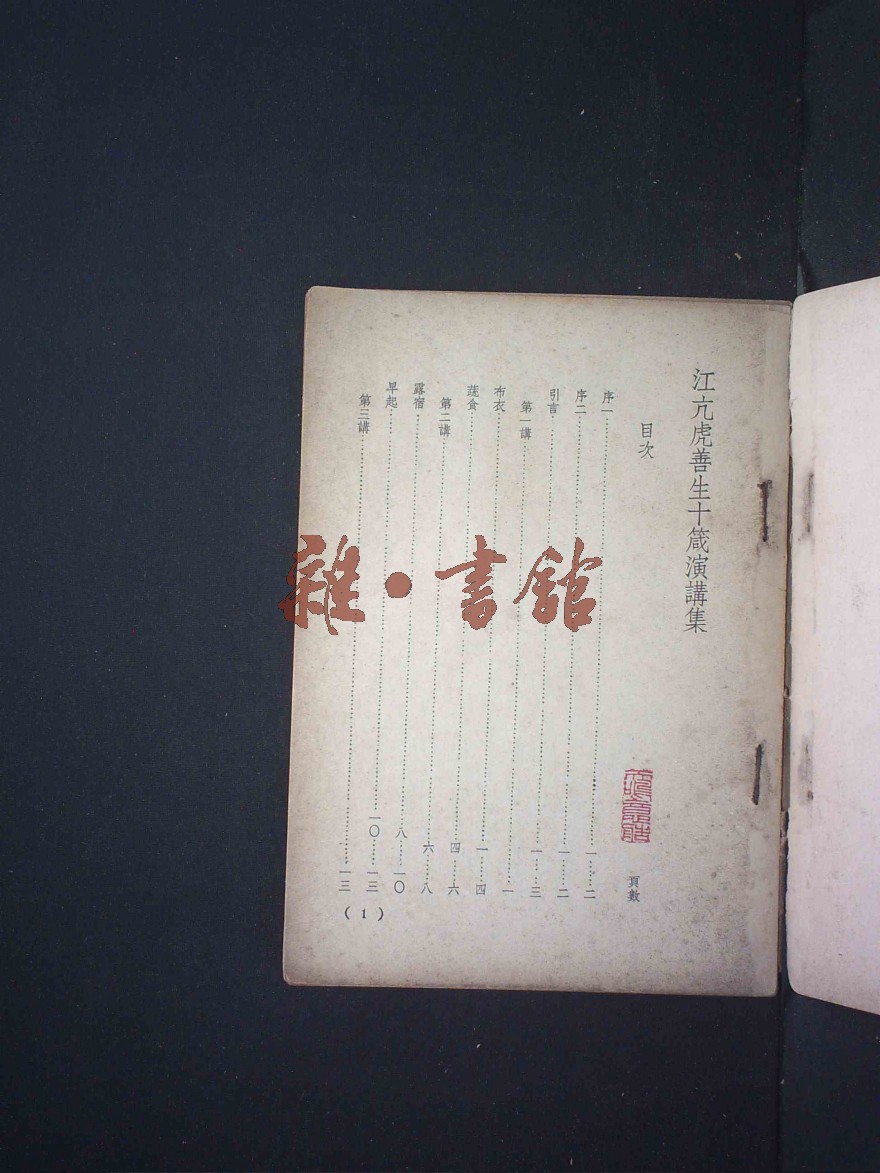 江亢虎善生十箴演講集
目次
頁數
序一……一……二
序二……一……二
引言……一……三
第一講……一
布衣……一……四
蔬食……四……六
第二講……六……八
露宿……八……一〇
早起……一〇……一三
第三講……一三
（1）
雜·書館